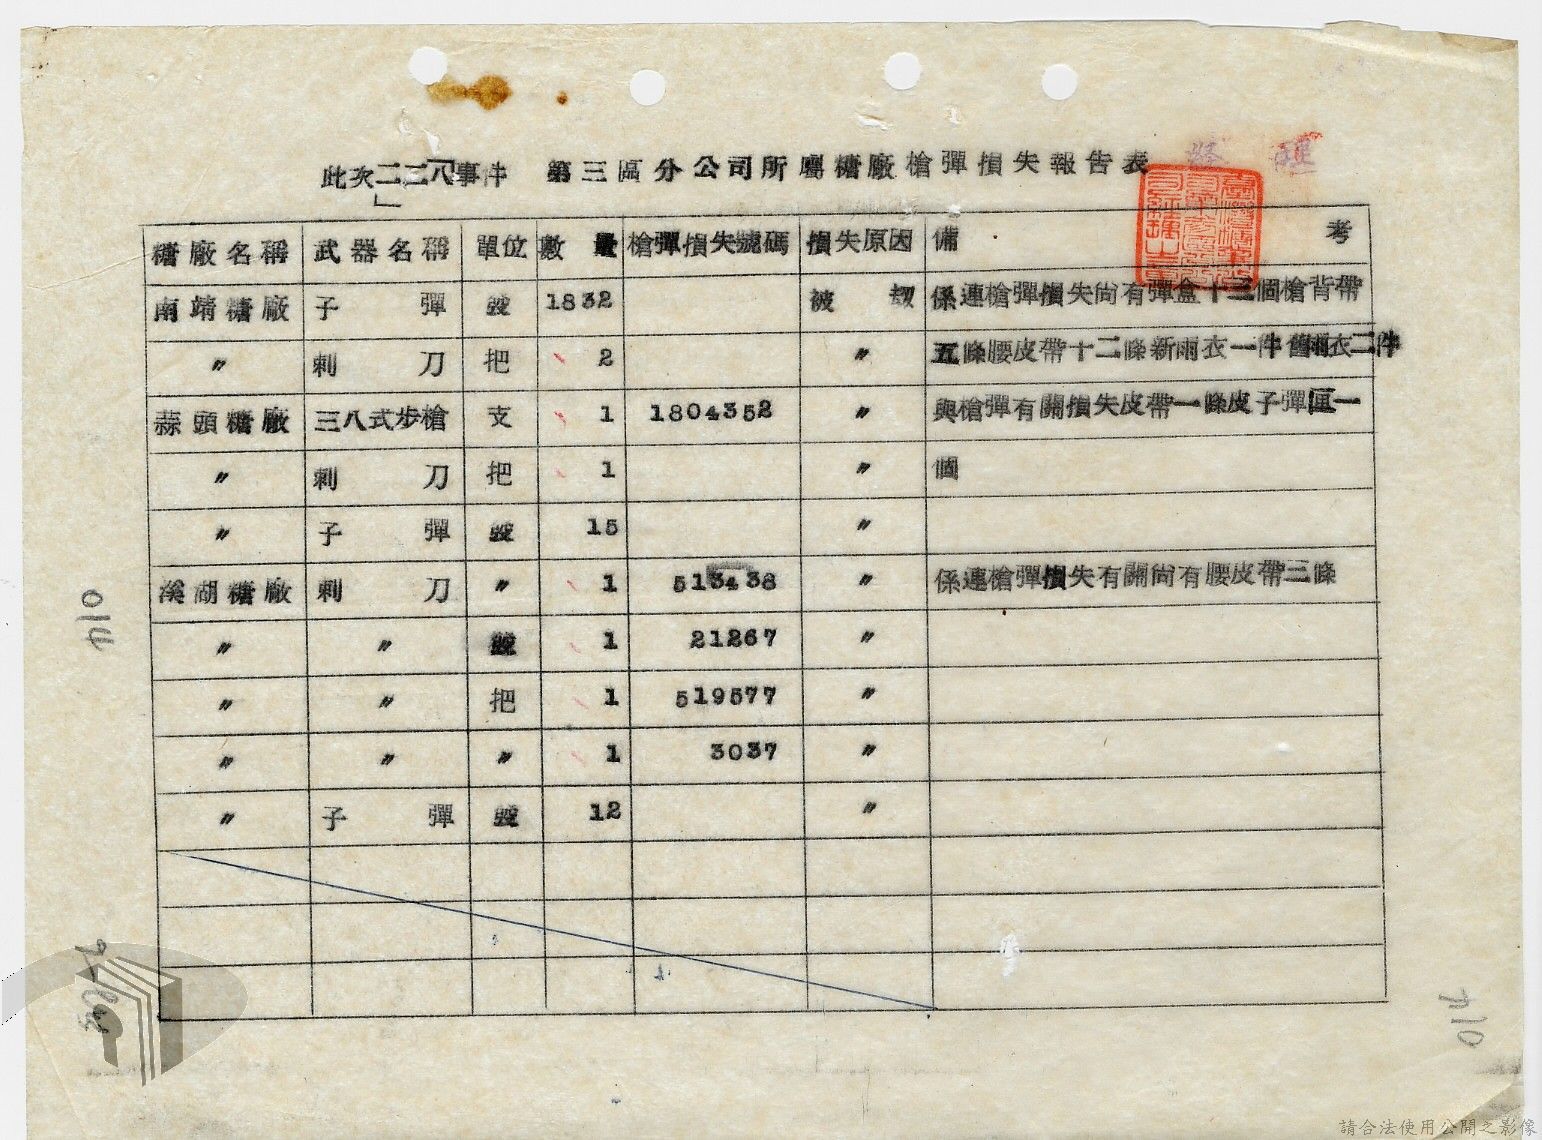 此次「二二八」事件 第三區分公司所屬糖廠槍彈損失報告表
糖廠名稱 武器名稱 單位 數量 槍彈損失號碼 損失原因 備考
南靖糖廠 子彈 發 1832 被刼 係連槍彈損失尚有彈盒十三個槍背帶
〃 刺刀 把 2 〃 五條腰皮帶十二條新雨衣一件舊雨衣二件
蒜頭糖廠 三八式步槍 支 1 1804352 〃 與槍彈有關損失皮帶一條皮子彈匣一
〃 刺刀 把 1 〃 個
〃 子彈 發 15 〃
溪湖糖廠 刺刀 〃 1 513438 〃 係連槍彈損失有關尚有腰皮帶三條
〃 〃 1 21267 〃
〃 〃 把 1 519577 〃
〃 〃 〃 1 3037 〃
〃 子彈 發 12 〃
014
410
請合法使用公開之影像